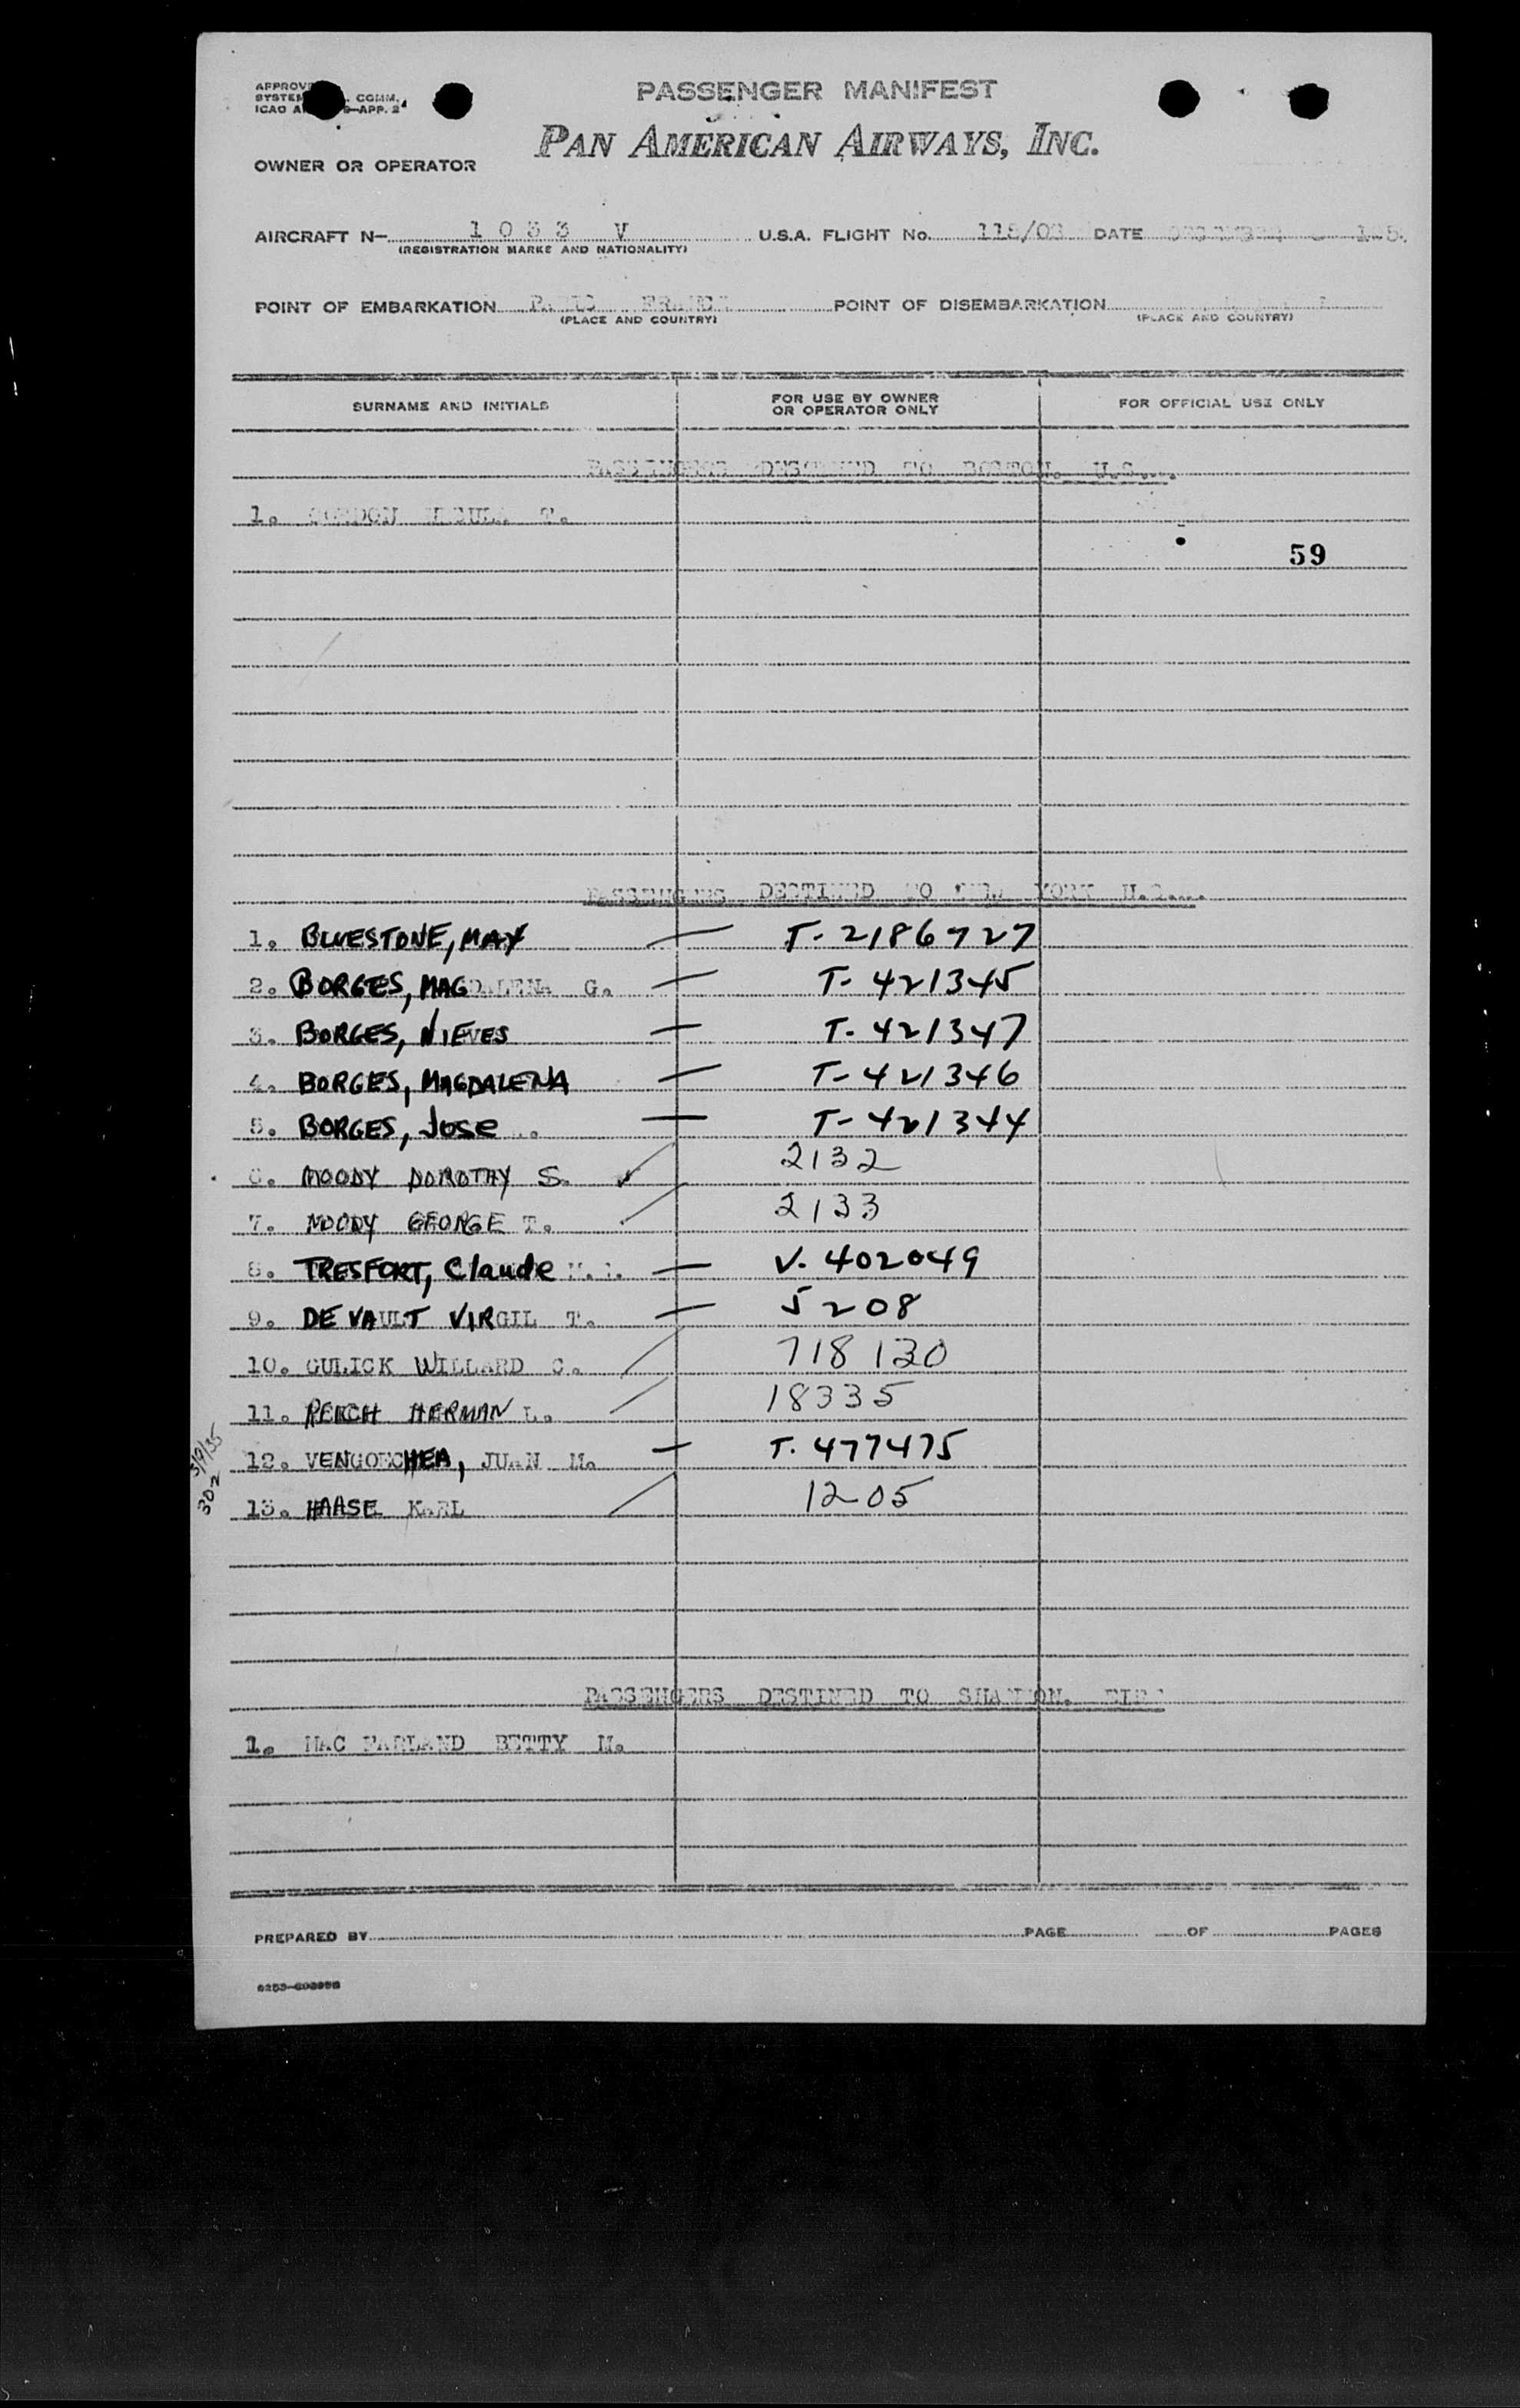 PASSENGER MANIFEST
PAN AMERICAN AIRWAYS, INC.
OWNER OR OPERATOR
AIRCRAFT N- 1033 V U.S.A. FLIGHT No. DATE
(REGISTRATION MARKS AND NATIONALITY)
POINT OF EMBARKATION PARIS FRANCE POINT OF DISEMBARKATION
(PLACE AND COUNTRY) (PLACE AND COUNTRY)
SURNAME AND INITIALS FOR USE BY OWNER OR OPERATOR ONLY FOR OFFICIAL USE ONLY
PASSENGERS DESTINED TO BOSTON. U.S.
1. GORDON T.
59
PASSENGERS DESTINED TO NEW YORK U.S.
1. BLUESTONE, MAY — T-2186727
2. BORGES, MAGDALENA G. — T-421345
3. BORGES, NIEVES — T-421347
4. BORGES, MAGDALENA — T-421346
5. BORGES, Jose — T-421344
6. MOODY DOROTHY S. ✓ 2132
7. MOODY GEORGE T. / 2133
8. TRESFORT, Claude — V-402049
9. DE VAULT VIRGIL T. — 5208
10. GULICK WILLARD C. / 718130
11. HERMAN L. / 18335
12. VENGOECHEA, JUAN M. — T-477475
302
13. HAASE KARL / 1205
PASSENGERS DESTINED TO SHANNON. EIRE
1. MAC FARLAND BETTY M.
PREPARED BY PAGE OF PAGES